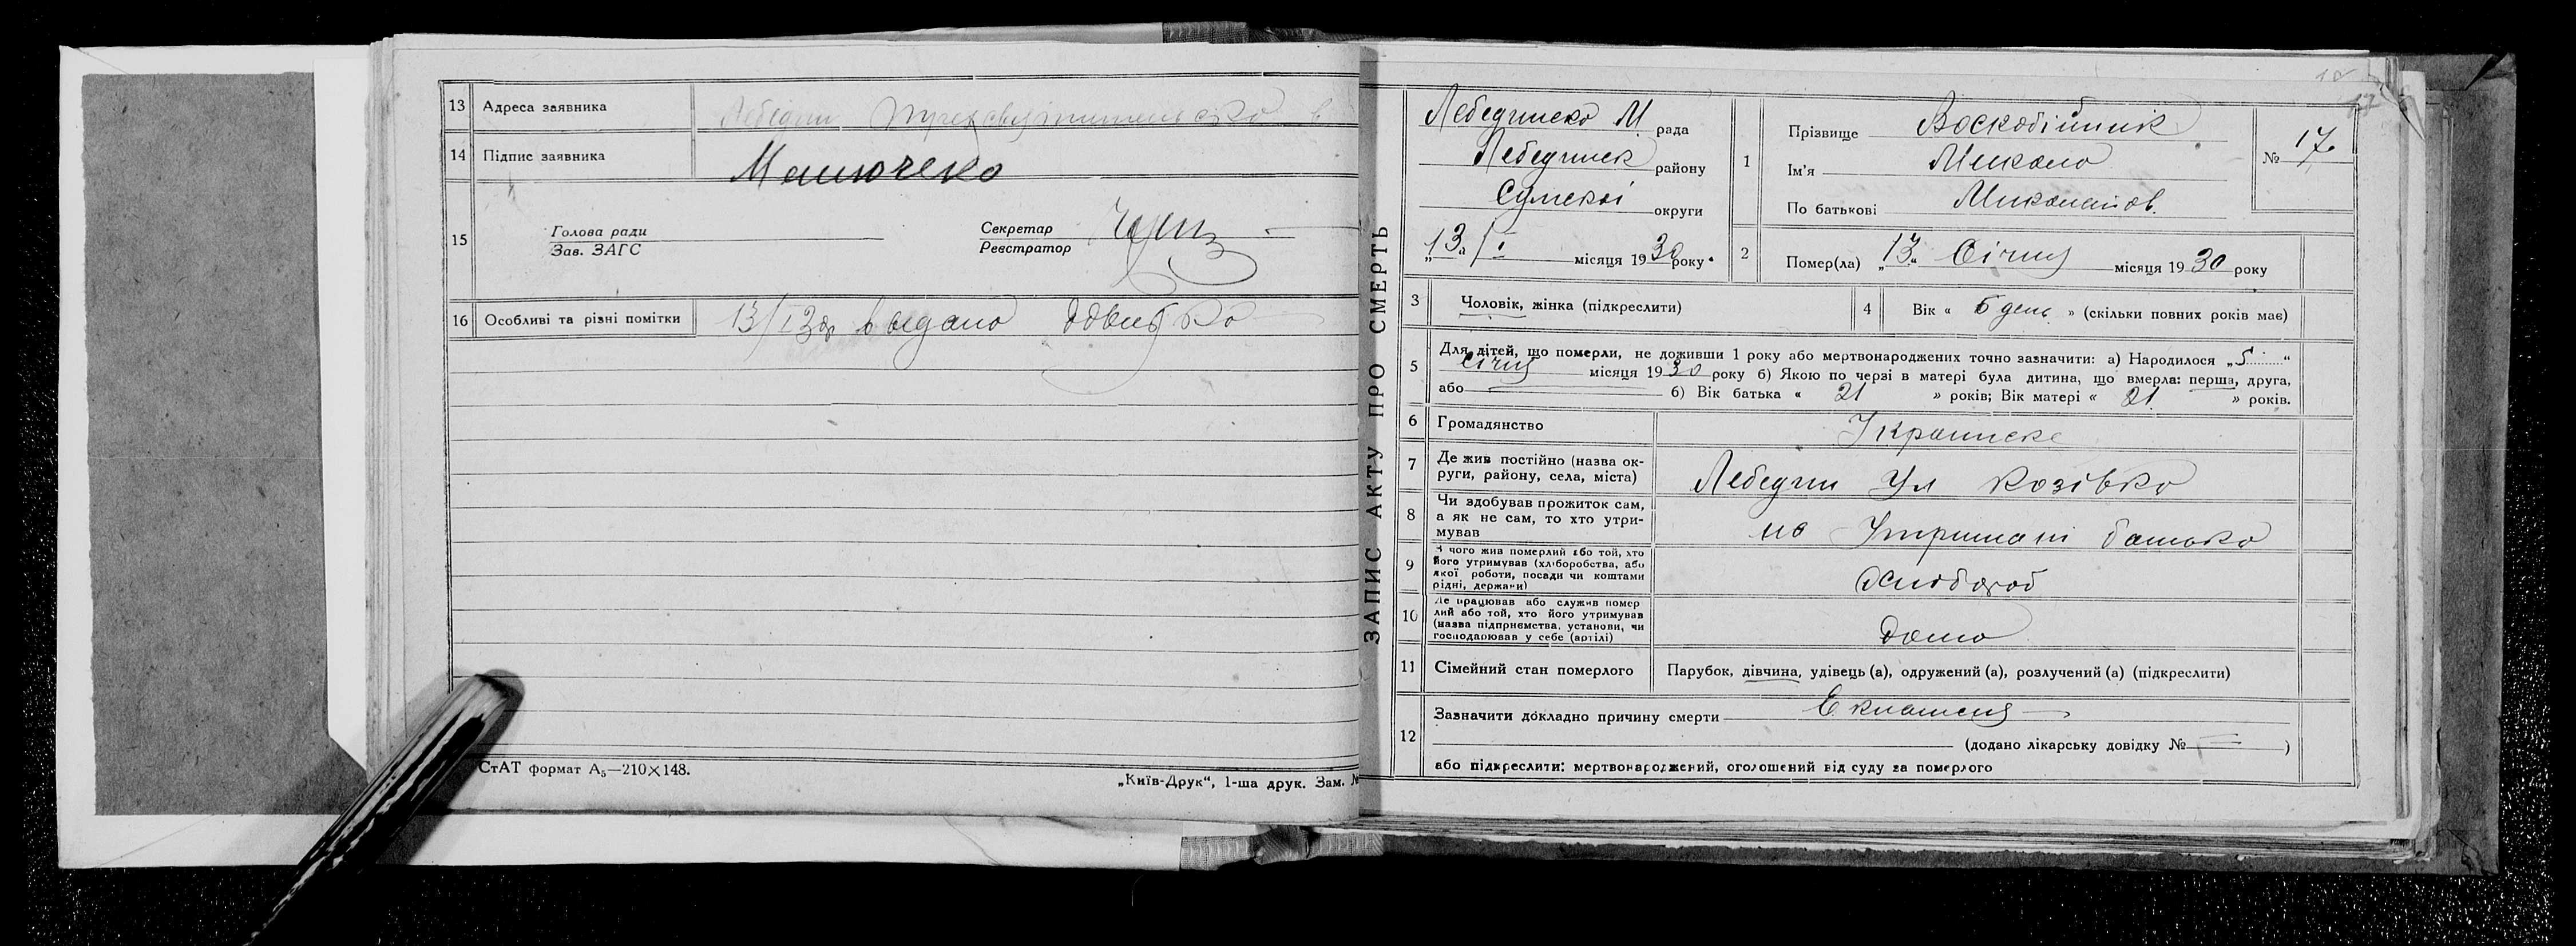 13 Адреса заявника Лебедин Трехсвятительська в
14 Підпис заявника
15 Голова ради
Зав. ЗАГС
Секретар
Реєстратор
16 Особливі та різні помітки 13/І 30р видано
СтАТ формат А₅—210×148.
„Київ-Друк“, 1-ша друк. Зам. №
ЗАПИС АКТУ ПРО СМЕРТЬ
Лебединсько М. рада
Лебединск району
Сумскоі округи
„13“ / І місяця 1930 року.
1 Прізвище Воскобійник
Ім'я Микола
По батькові Миколайов.
№ 17
2 Помер(ла) „13“ Січня місяця 1930 року
3 Чоловік, жінка (підкреслити)
4 Вік « 5 день » (скільки повних років має)
5 Для дітей, що померли, не доживши 1 року або мертвонароджених точно зазначити: а) Народилося „5“
Січня місяця 1930 року б) Якою по черзі в матері була дитина, що вмерла: перша, друга,
або б) Вік батька « 21 » років; Вік матері « 21 » років.
6 Громадянство Украинске
7 Де жив постійно (назва ок-
руги, району, села, міста) Лебедин Ул Козівка
8 Чи здобував прожиток сам,
а як не сам, то хто утри-
мував на Утримані батька
9 З чого жив померлий або той, хто
його утримував (хліборобства, або
якої роботи, посади чи коштами
рідні, держави) Хлібороб
10 Де працював або служив помер
лий або той, хто його утримував
(назва підприємства, установи, чи
господарював у себе (артілі) дома
11 Сімейний стан померлого Парубок, дівчина, удівець (а), одружений (а), розлучений (а) (підкреслити)
12 Зазначити докладно причину смерти Екламсия
(додано лікарську довідку № — )
або підкреслити: мертвонароджений, оголошений від суду за померлого